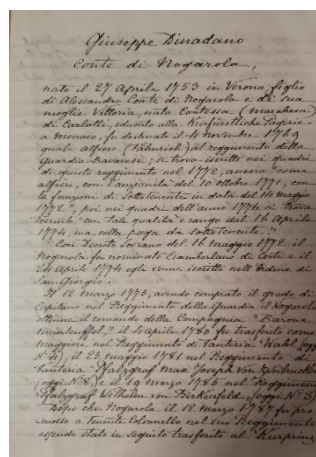 Giuseppe Dinadano
Conte di Nogarola,
nato il 27 Aprile 1753 in Verona, figlio
di Alessandro Conte di Nogarola e di sua
moglie Vittoria, nata Contessa (marchesa)
di Carlotti, educato alla
a Monaco, fu destinato il 4 novembre 1769
quale alfiere (Fähnrich) al reggimento della
guardia bavarese; si trova iscritto nei quadri
di questo reggimento nel 1772, ancora "come
alfiere, con l'anzianità del 10 ottobre 1771, con
le funzioni di sottotenente in data del 14 maggio
1772", poi nei quadri dell'anno 1774 si trova
"con tale qualità e rango dal 16 Aprile
1774, ma colla paga da sottotenente."
Con Decreto Sovrano del 16 maggio 1772 il
Nogarola fu nominato Ciambellano di Corte e il
24 Aprile 1774 egli venne iscritto nell'Ordine di
San Giorgio.
Il 12 marzo 1775, avendo comprato il grado di
Capitano nel Reggimento della Guardia il Nogarola
ottenne il comando della Compagnia "Baron
." Il 4 Aprile 1780 fu trasferito come
maggiore nel Reggimento di fanteria "Wahl (oggi
Nº 4), il 28 maggio 1781 nel Reggimento di
fanteria "Pfalzgraf Max Joseph von Zweibrücken
(oggi Nº 8) e il 19 marzo 1785 nel Reggimento
Pfalzgraf Wilhelm von Birkenfeld (oggi Nº 3)
Dopo che Nogarola il 12 marzo 1787 fu pro-
mosso a Tenente Colonnello nel suo Reggimento
essendo stato in seguito trasferito al "Kurprinz